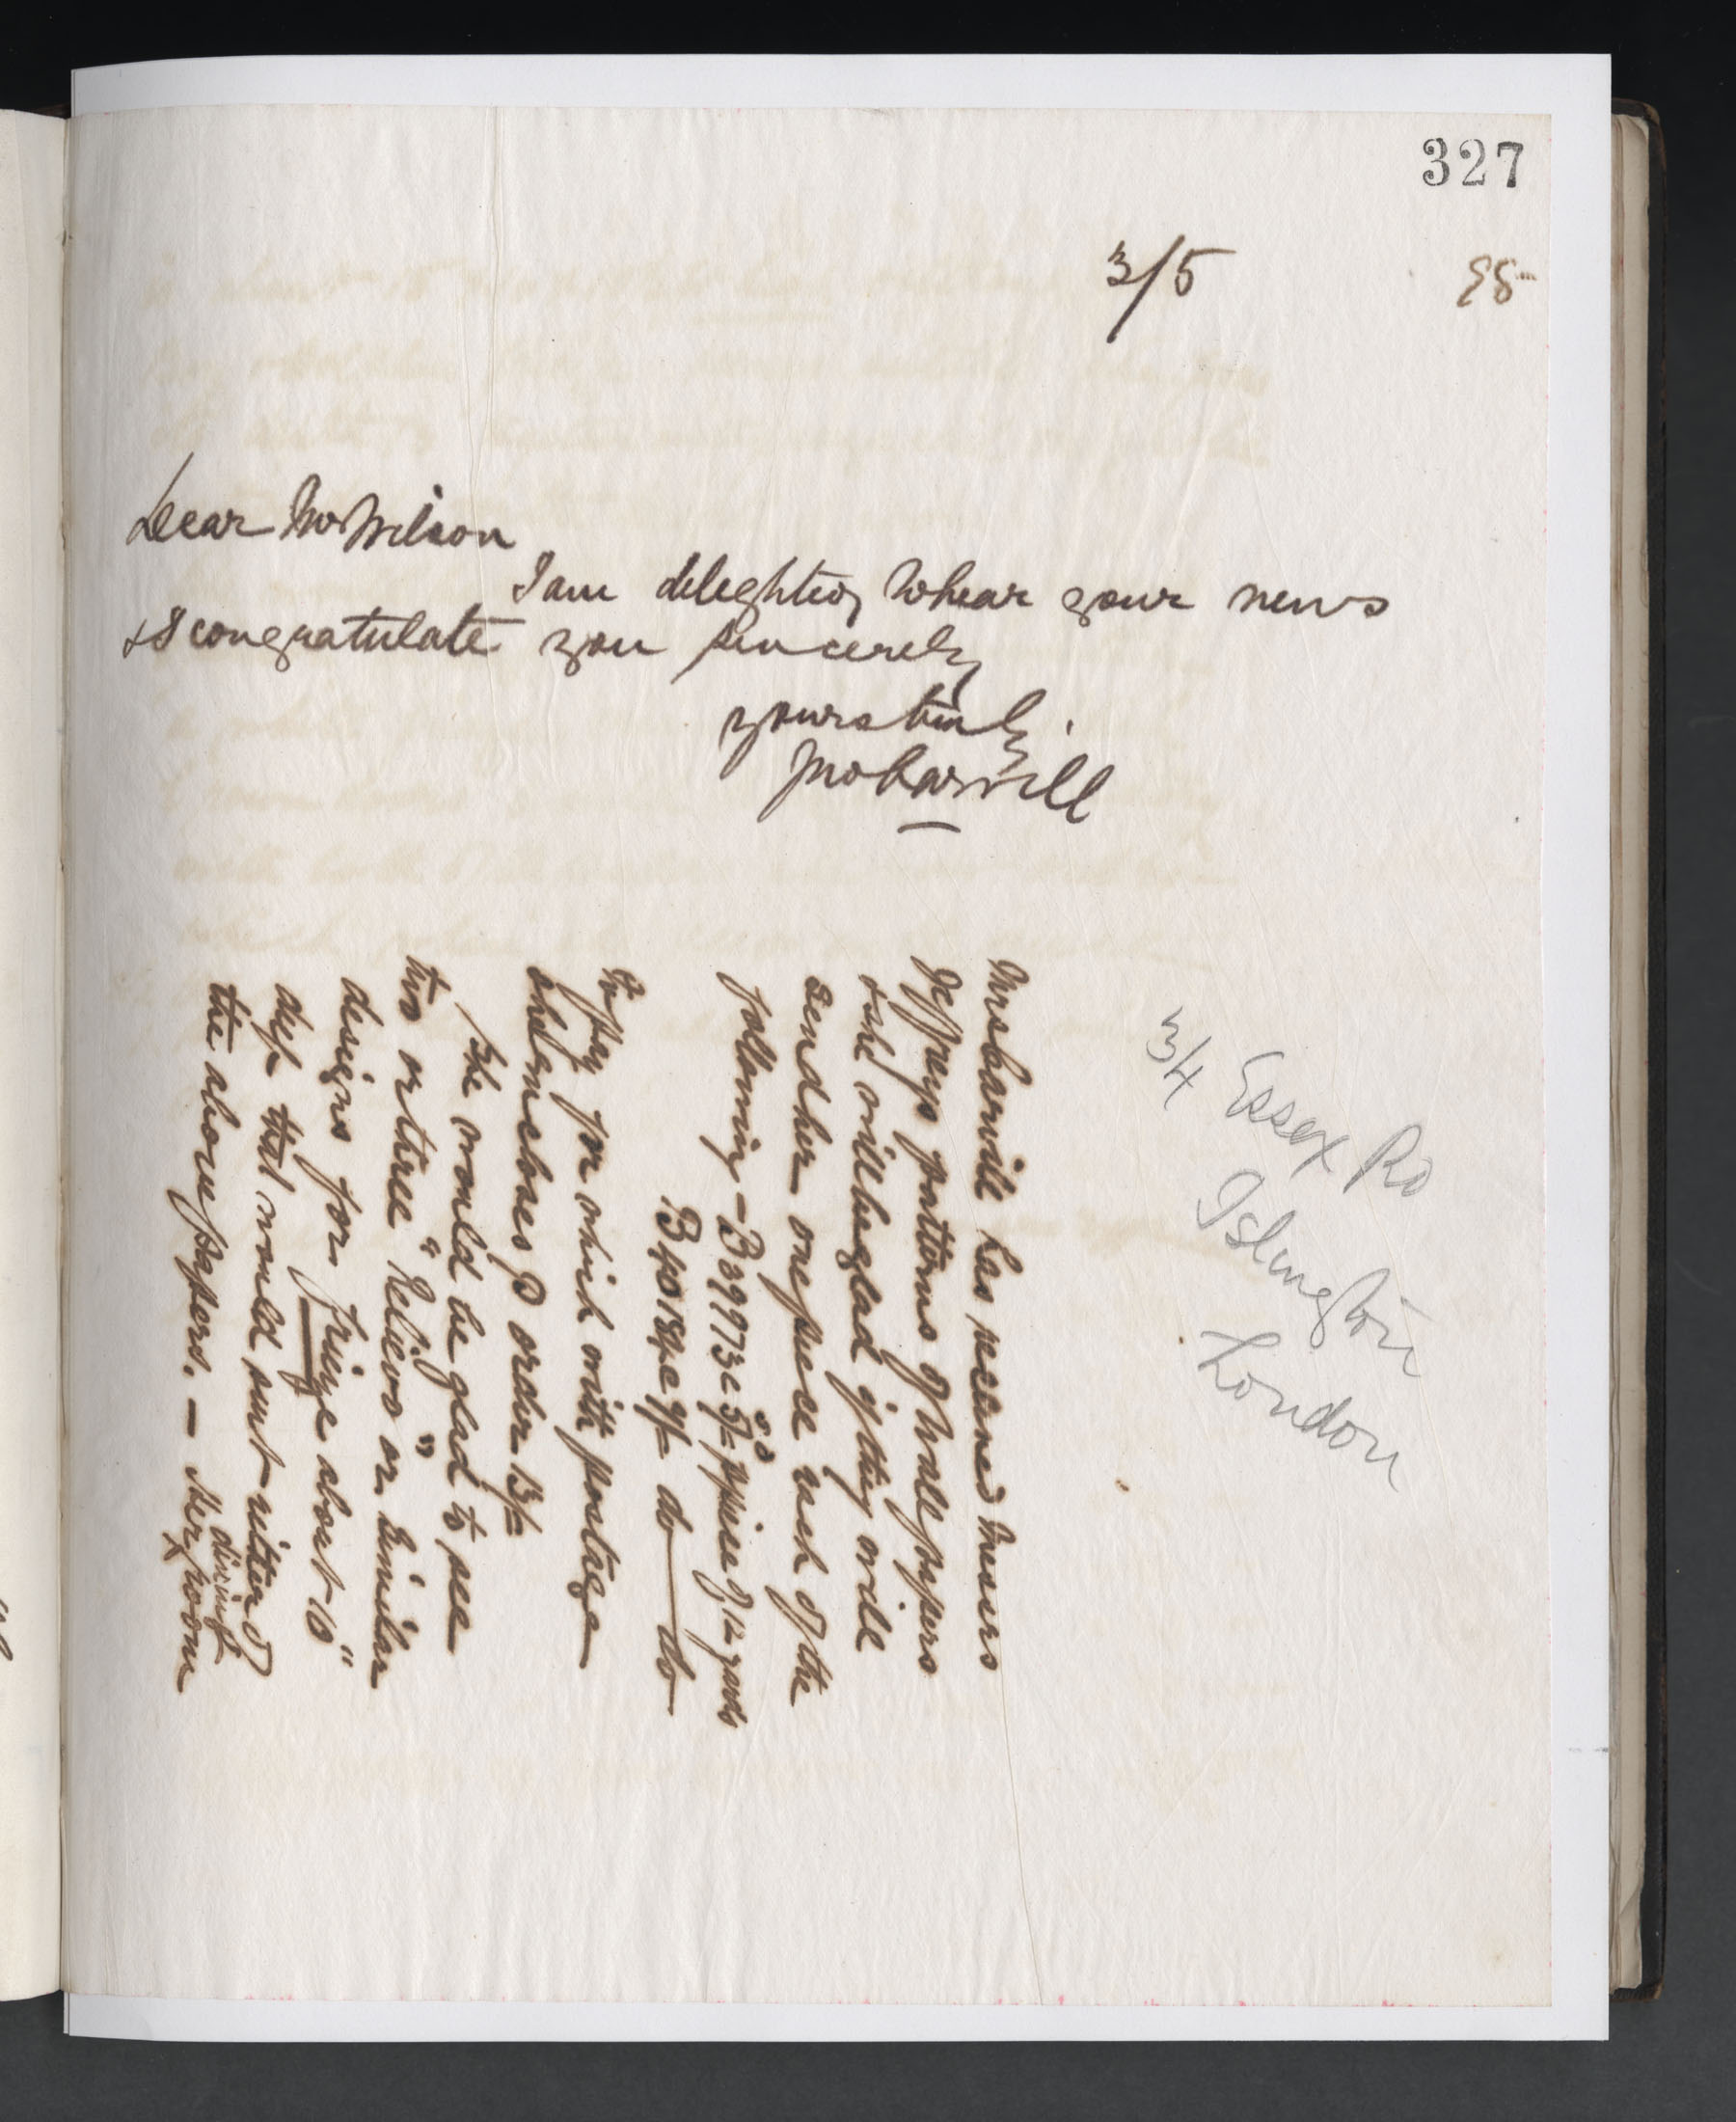 327
3/5 98
Dear Mr Wilson
I am delighted to hear your news
& I congratulate you sincerely
yours truly
Jno Carvill
Mrs Carvill has received Messrs
Jeffreys patterns of Wall papers
& she will be glad if they will
send her one piece each of the
following – B 39973 c 5/- p piece of 12 yards
B 40184 c 9/- do do
To pay for which with postage
she encloses P order 15/-
She would be glad to see
two or three "Relievo" or similar
designs for frieze about 16"
deep that would suit either of
the above papers. – dining room
3/4 Essex Rd
Islington
London